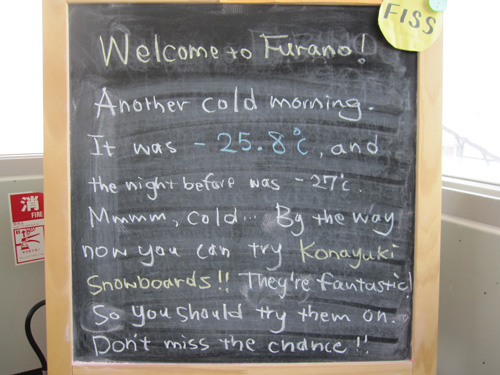 FISS
Welcome to Furano!
Another cold morning.
It was -25.8°c, and
the night before was -27°c.
Mmmm, cold... By the way
now you can try Konayuki
Snowboards!! They're fantastic!
So you should try them on.
Don't miss the chance!!
消
FIRE